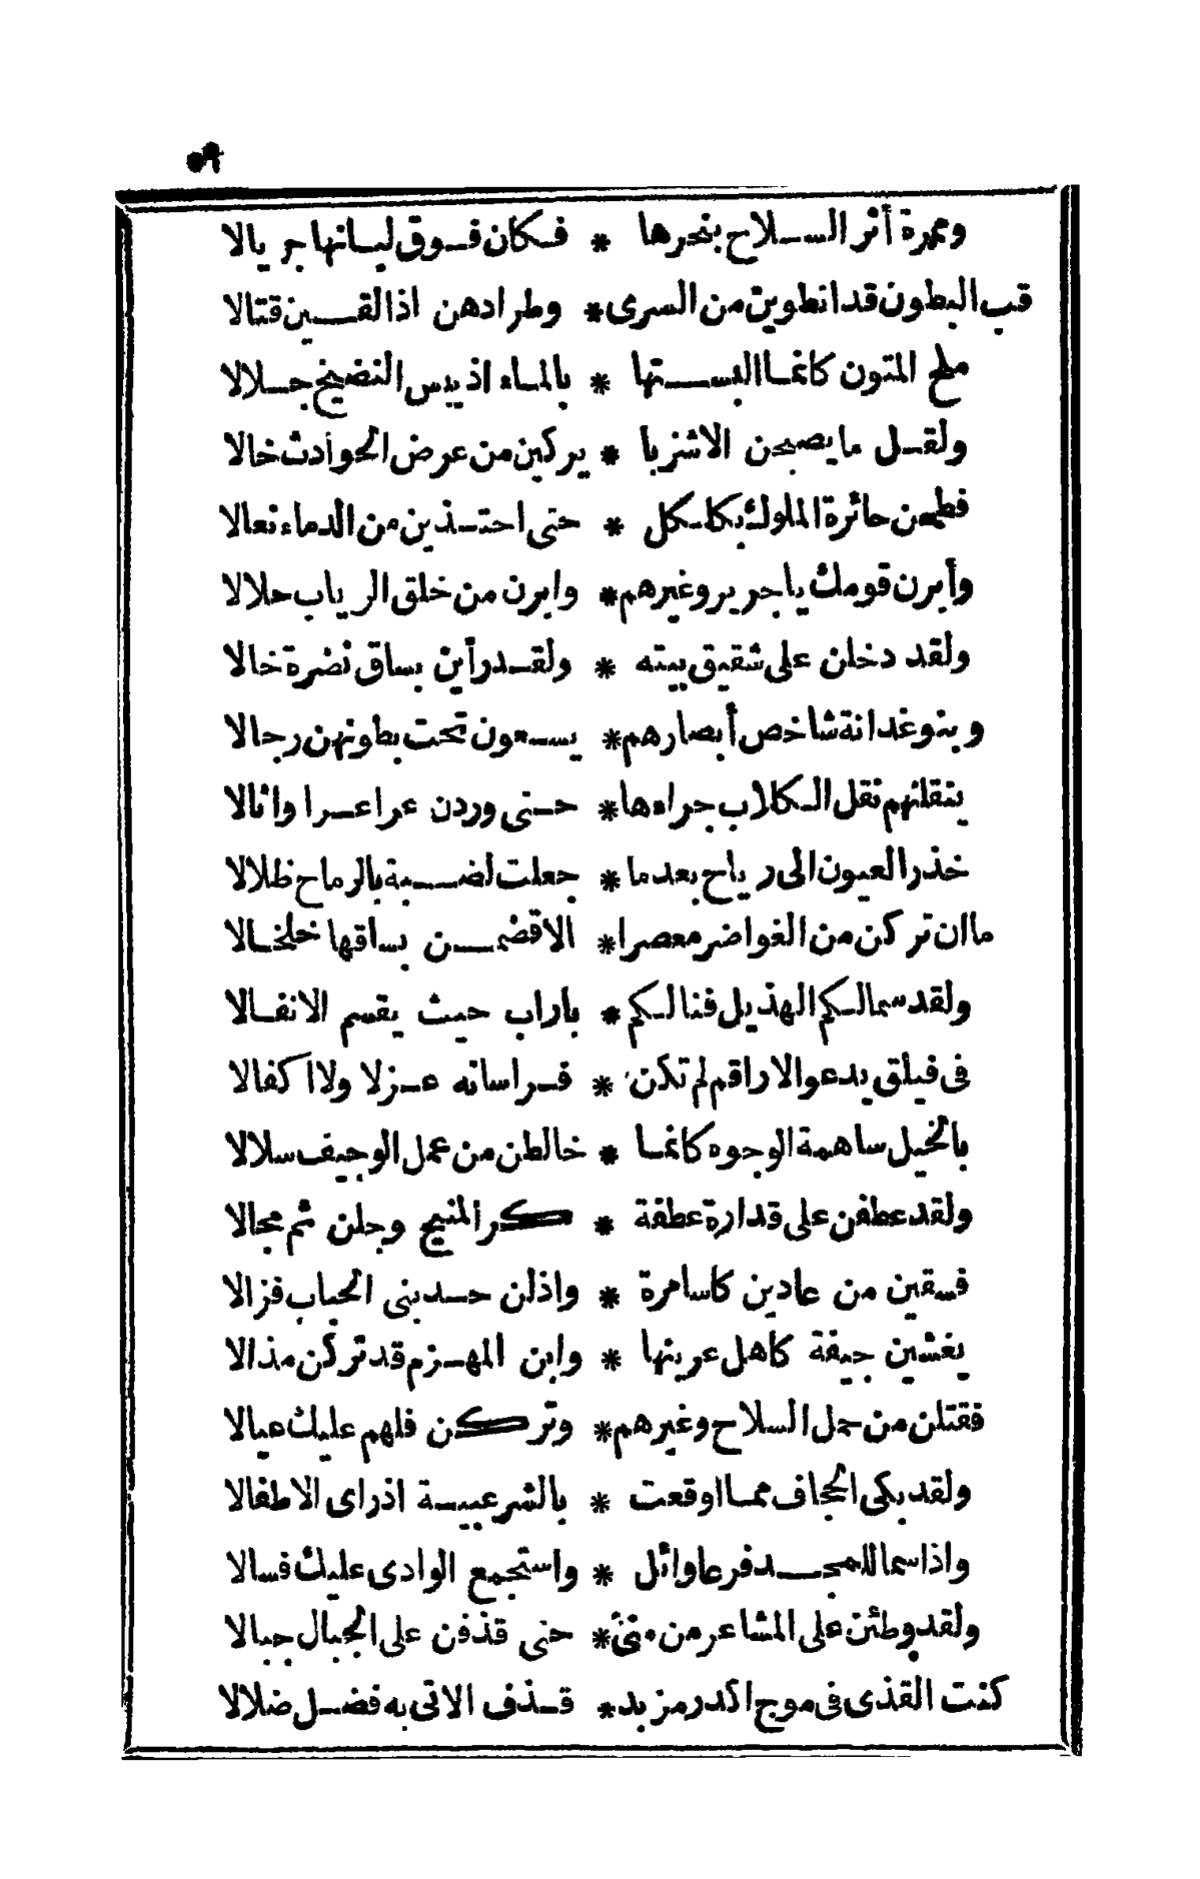 ٥٩
وممرة أثر السلاح بنحرها * فكان فوق لبانها جريالا
قب البطون قد انطوين من السرى * وطرادهن اذا لقين قتالا
ملح المتون كانما البستها * بالماء اذ يبس النضيخ جلالا
ولقل ما يصبحن الا شزبا * يركبن من عرض الحوادث خالا
فطحن حائرة الملوك بكلكل * حتى احتذين من الدماء نعالا
وأبرن قومك يا جرير وغيرهم * وابرن من خلق الرباب حلالا
ولقد دخلن على شقيق بيته * ولقد رأين بساق نضرة خالا
وبنو غدانة شاخص أبصارهم * يسعون تحت بطونهن رجالا
ينقلنهم نقل الكلاب جراءها * حتى وردن عراعرا واثالا
خذر العيون الى رياح بعدما * جعلت لضبة بالرماح ظلالا
ما ان تركن من الغواضر معصرا * الا قضمن بساقها خلخالا
ولقد سما لكم الهذيل فنالكم * باراب حيث يقسم الانفالا
فى فيلق يدعو الاراقم لم تكن * فراسانه عزلا ولا اكفالا
بالخيل ساهمة الوجوه كانما * خالطن من عمل الوجيف سلالا
ولقد عطفن على قدارة عطفة * كر المنيح وجلن ثم مجالا
فسقين من عادين كاسا مرة * واذلن حد بنى الحباب فزالا
يغشين جيفة كاهل عرينها * وابن المهزم قد تركن مذالا
فقتلن من حمل السلاح وغيرهم * وتركن فلهم عليك عيالا
ولقد بكى الحجاف مما اوقعت * بالشرعبية اذ راى الاطفالا
واذا سما للمجد فرعا وائل * واستجمع الوادى عليك فسالا
ولقد وطئن على المشاعر من منى * حتى قذفن على الجبال جبالا
كنت القذى فى موج اكدر مزبد * قذف الاتى به فضل ضلالا